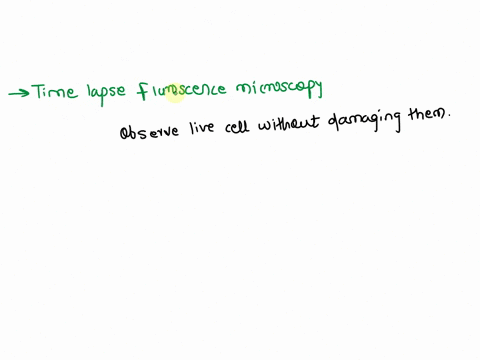 → Time lapse fluroscence microscopy
Observe live cell without damaging them.